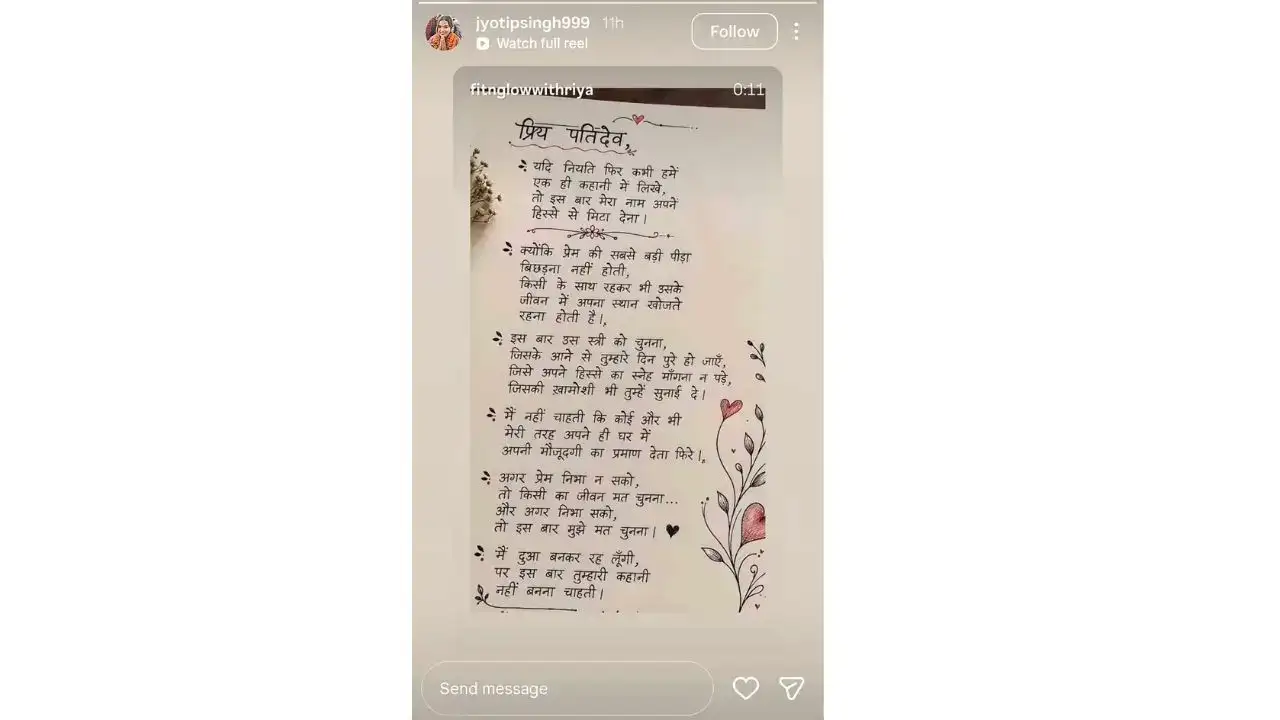 jyotipsingh999 11h
Watch full reel
Follow
fitnglowwithriya
0:11
प्रिय पतिदेव,
यदि नियति फिर कभी हमें
एक ही कहानी में लिखे,
तो इस बार मेरा नाम अपने
हिस्से से मिटा देना।
क्योंकि प्रेम की सबसे बड़ी पीड़ा
बिछड़ना नहीं होती,
किसी के साथ रहकर भी उसके
जीवन में अपना स्थान खोजते
रहना होती है।
इस बार उस स्त्री को चुनना,
जिसके आने से तुम्हारे दिन पुरे हो जाएँ,
जिसे अपने हिस्से का स्नेह माँगना न पड़े,
जिसकी ख़ामोशी भी तुम्हें सुनाई दे।
मैं नहीं चाहती कि कोई और भी
मेरी तरह अपने ही घर में
अपनी मौजूदगी का प्रमाण देता फिरे।
अगर प्रेम निभा न सको,
तो किसी का जीवन मत चुनना...
और अगर निभा सको,
तो इस बार मुझे मत चुनना।
मैं दुआ बनकर रह लूँगी,
पर इस बार तुम्हारी कहानी
नहीं बनना चाहती।
Send message